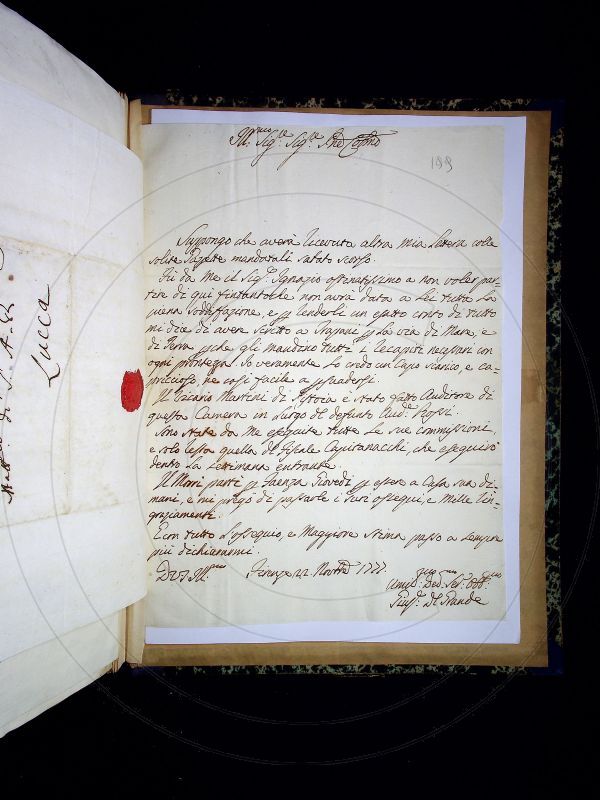 199
Suppongo che averà ricevuta altra mia lettera colle
solite
Fù da me il Sig.r Ignazio ostinatissimo a non voler par-
tire di qui fintantoche non avrà data a Lei tutta la
piena soddisfazione, e p renderli un esatto conto di tutto
mi dice di avere scritto a Trapani p la via di Mare, e
di Terra pche gli mandino tutti i recapiti necessari con
ogni prontezza. Io veramente lo credo un Capo bianco, e ca-
priccioso, ne così facile a psuadersi.
Il Vicario Martini di Pistoia è stato fatto Auditore di
questa Camera in luogo del defunto Aud.re Rossi.
Sono state da me eseguite tutte le sue commissioni,
e solo resta quella del Fiscale Capitanacchi, che eseguirò
dentro la settimana entrante.
Il parti p Faenza Giovedì p essere a Casa sua di-
mani, e mi pregò di passarle i suoi ossequi, e mille rin-
graziamenti.
E con tutto l'ossequio, e maggiore stima passo a sempre
più dichiararmi.
Di V.S. Ill.ma Firenze 22 Novbre 1727.
Lucca